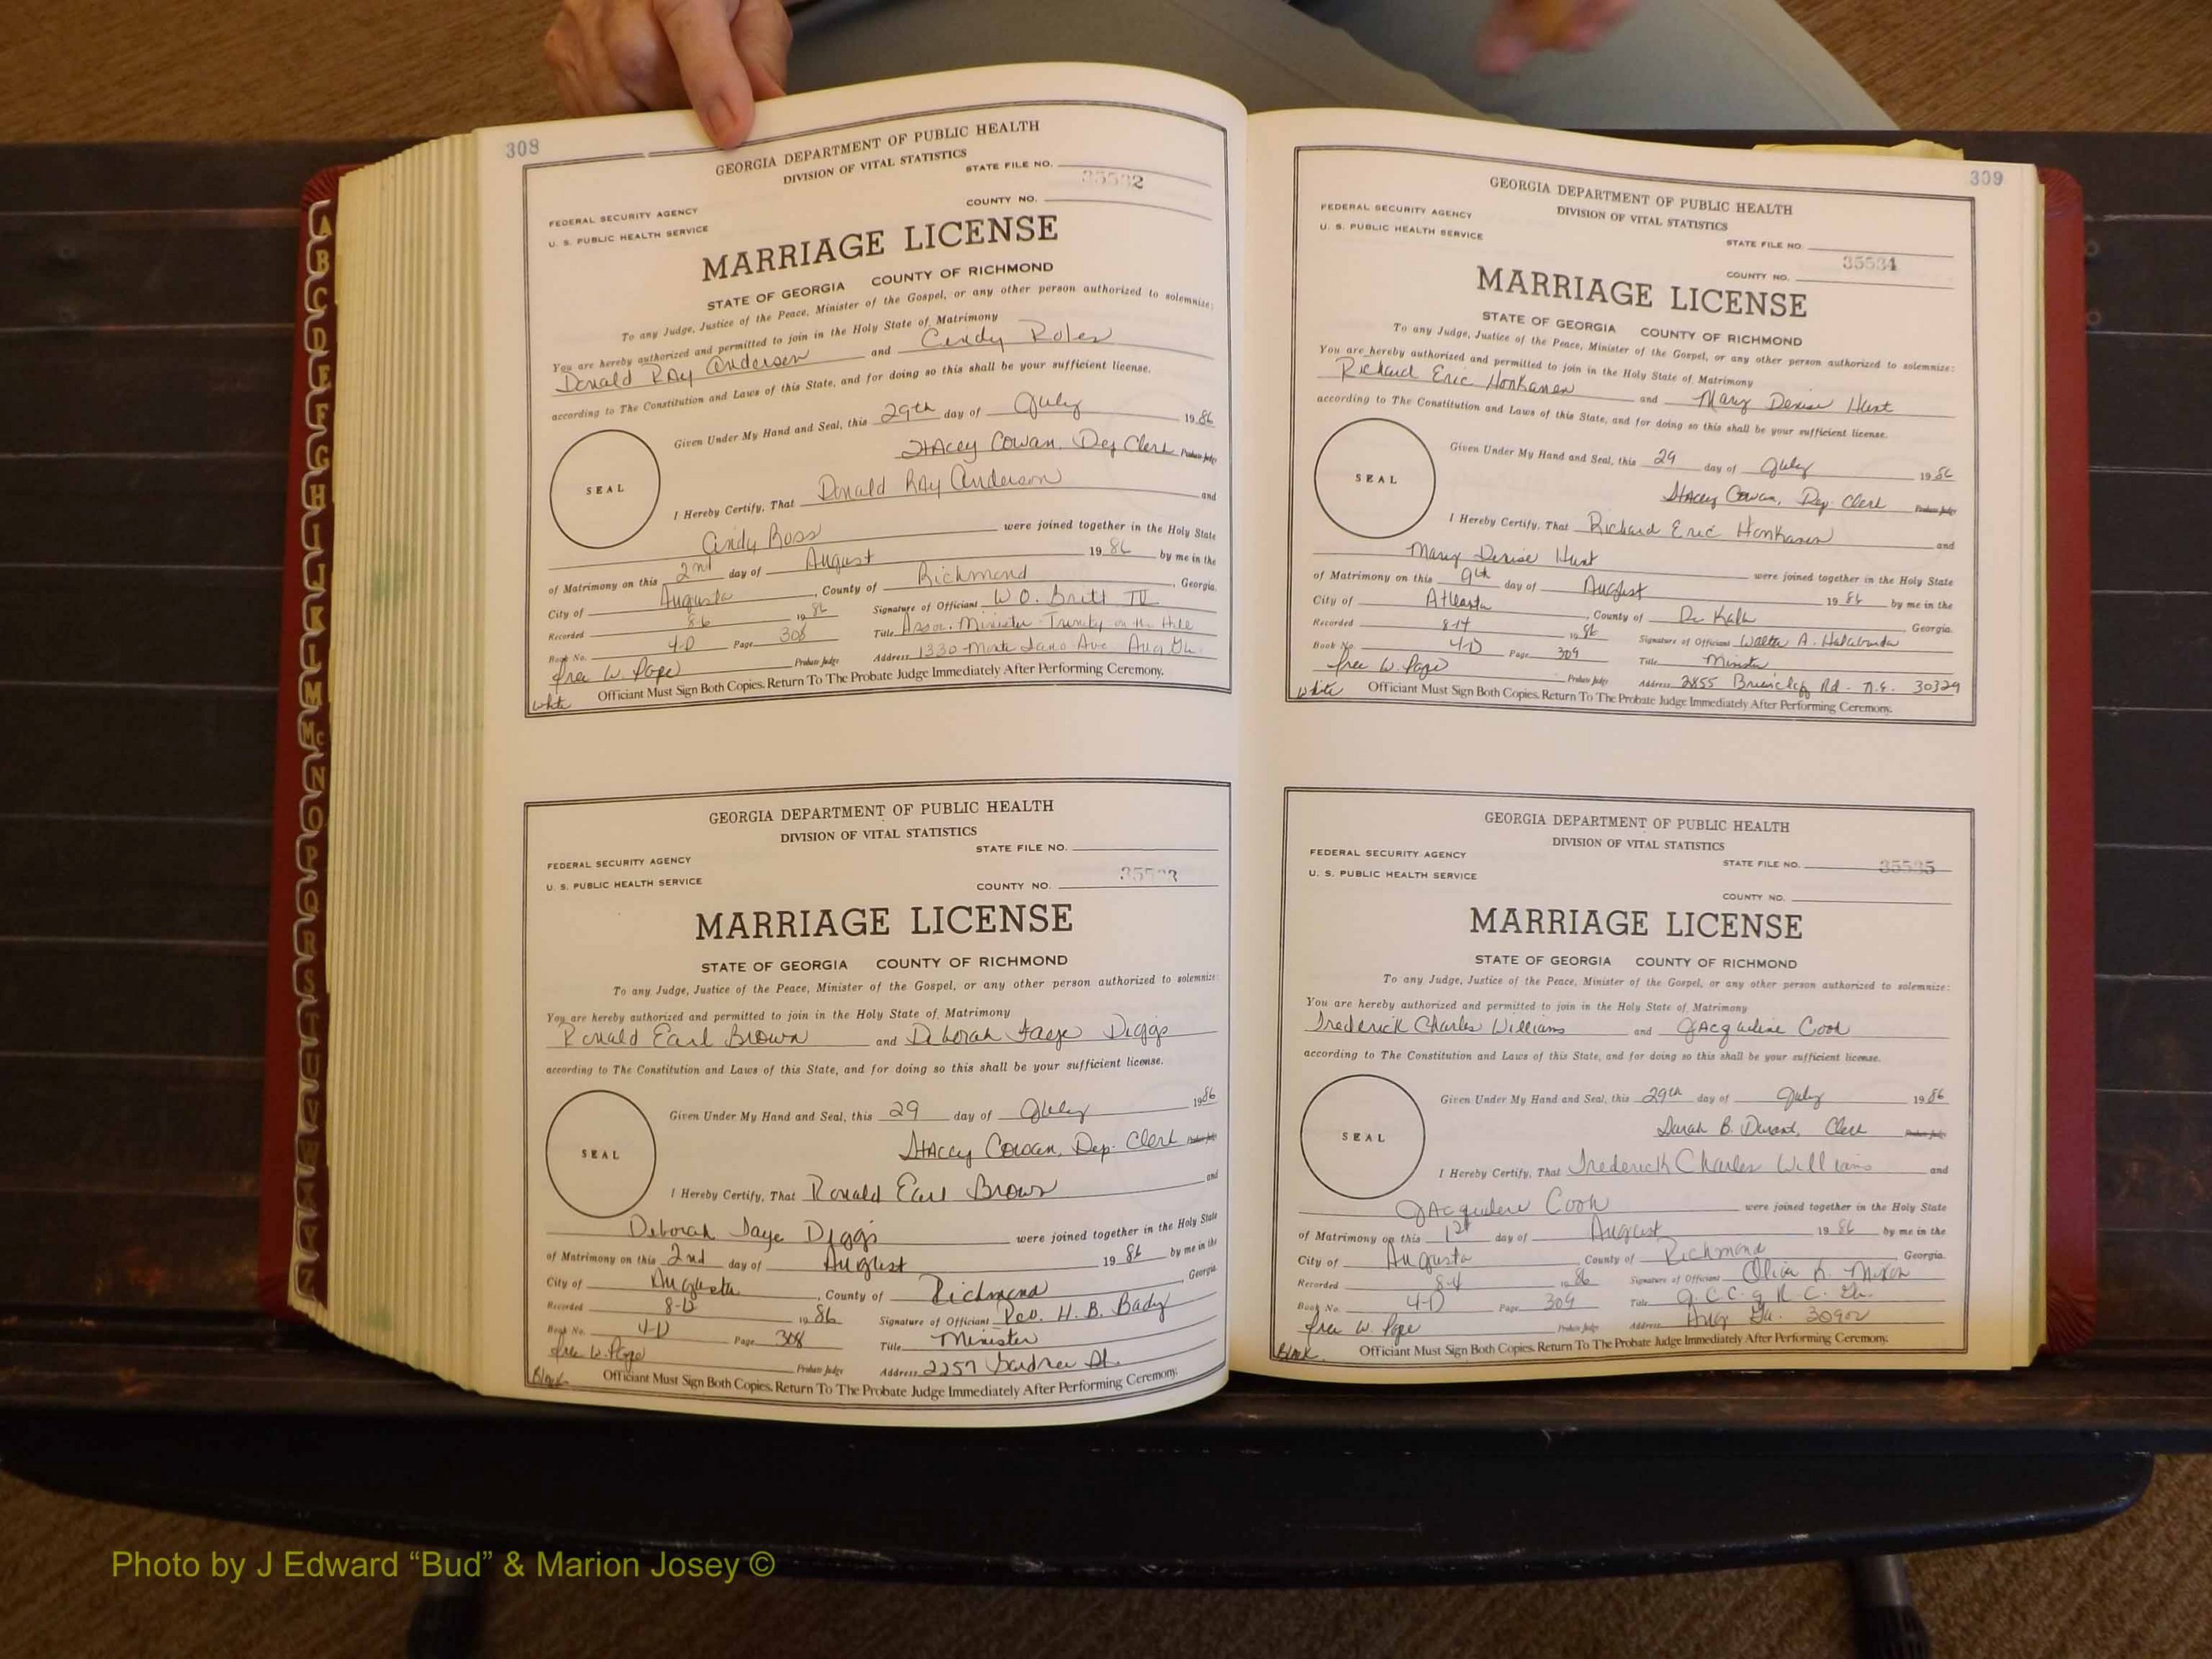 308
GEORGIA DEPARTMENT OF PUBLIC HEALTH
DIVISION OF VITAL STATISTICS
STATE FILE NO.
35532
FEDERAL SECURITY AGENCY
COUNTY NO.
U. S. PUBLIC HEALTH SERVICE
MARRIAGE LICENSE
STATE OF GEORGIA COUNTY OF RICHMOND
To any Judge, Justice of the Peace, Minister of the Gospel, or any other person authorized to solemnize:
You are hereby authorized and permitted to join in the Holy State of Matrimony
Donald Ray Anderson and Cindy Roles
according to The Constitution and Laws of this State, and for doing so this shall be your sufficient license.
Given Under My Hand and Seal, this 29th day of July 1986
Stacey Cowan, Dep Clerk Probate Judge
SEAL
I Hereby Certify, That Donald Ray Anderson and
Cindy Ross were joined together in the Holy State
of Matrimony on this 2nd day of August 1986 by me in the
City of Augusta, County of Richmond, Georgia.
Recorded 8-6 1986 Signature of Officiant W. O. Britt IV
Book No. 4-D Page 308 Title Asso. Minister Trinity on the Hill
W. Pope Probate Judge Address 1330 Monte Sano Ave Aug Ga.
White Officiant Must Sign Both Copies. Return To The Probate Judge Immediately After Performing Ceremony.
GEORGIA DEPARTMENT OF PUBLIC HEALTH
DIVISION OF VITAL STATISTICS
STATE FILE NO.
FEDERAL SECURITY AGENCY
U. S. PUBLIC HEALTH SERVICE
COUNTY NO.
MARRIAGE LICENSE
STATE OF GEORGIA COUNTY OF RICHMOND
To any Judge, Justice of the Peace, Minister of the Gospel, or any other person authorized to solemnize:
You are hereby authorized and permitted to join in the Holy State of Matrimony
Ronald Earl Brown and Deborah Faye Diggs
according to The Constitution and Laws of this State, and for doing so this shall be your sufficient license.
Given Under My Hand and Seal, this 29 day of July 1986
Stacey Cowan, Dep. Clerk Probate Judge
SEAL
I Hereby Certify, That Ronald Earl Brown and
Deborah Faye Diggs were joined together in the Holy State
of Matrimony on this 2nd day of August 1986 by me in the
City of Augusta, County of Richmond, Georgia.
Recorded 8-12 1986 Signature of Officiant Rev. H. B. Bady
Book No. 4-D Page 308 Title Minister
W. Pope Probate Judge Address 2257 St.
Black Officiant Must Sign Both Copies. Return To The Probate Judge Immediately After Performing Ceremony.
309
GEORGIA DEPARTMENT OF PUBLIC HEALTH
DIVISION OF VITAL STATISTICS
FEDERAL SECURITY AGENCY
STATE FILE NO.
U. S. PUBLIC HEALTH SERVICE
35534
COUNTY NO.
MARRIAGE LICENSE
STATE OF GEORGIA COUNTY OF RICHMOND
To any Judge, Justice of the Peace, Minister of the Gospel, or any other person authorized to solemnize:
You are hereby authorized and permitted to join in the Holy State of Matrimony
Richard Eric Honkanen and Mary Denise Hunt
according to The Constitution and Laws of this State, and for doing so this shall be your sufficient license.
Given Under My Hand and Seal, this 29 day of July 1986
Stacey Cowan, Dep. Clerk Probate Judge
SEAL
I Hereby Certify, That Richard Eric Honkanen and
Mary Denise Hunt were joined together in the Holy State
of Matrimony on this 9th day of August 1986 by me in the
City of Atlanta, County of De Kalb, Georgia.
Recorded 8-14 1986 Signature of Officiant Walter A.
Book No. 4-D Page 309 Title Minister
W. Pope Probate Judge Address 2855 Briarcliff Rd. N.E. 30329
White Officiant Must Sign Both Copies. Return To The Probate Judge Immediately After Performing Ceremony.
GEORGIA DEPARTMENT OF PUBLIC HEALTH
DIVISION OF VITAL STATISTICS
FEDERAL SECURITY AGENCY
STATE FILE NO. 35535
U. S. PUBLIC HEALTH SERVICE
COUNTY NO.
MARRIAGE LICENSE
STATE OF GEORGIA COUNTY OF RICHMOND
To any Judge, Justice of the Peace, Minister of the Gospel, or any other person authorized to solemnize:
You are hereby authorized and permitted to join in the Holy State of Matrimony
Frederick Charles Williams and Jacqueline Cook
according to The Constitution and Laws of this State, and for doing so this shall be your sufficient license.
Given Under My Hand and Seal, this 29th day of July 1986
Sarah B. Durant, Clerk Probate Judge
SEAL
I Hereby Certify, That Frederick Charles Williams and
Jacqueline Cook were joined together in the Holy State
of Matrimony on this 1st day of August 1986 by me in the
City of Augusta, County of Richmond, Georgia.
Recorded 8-4 1986 Signature of Officiant Olivia K. Nixon
Book No. 4-D Page 309 Title R. C. Ga.
W. Pope Probate Judge Address Aug Ga. 30902
Black Officiant Must Sign Both Copies. Return To The Probate Judge Immediately After Performing Ceremony.
A
B
C
D
E
F
G
H
I
J
K
L
M
Mc
N
O
P
Q
R
S
T
U
V
W
X
Y
Z
Photo by J Edward “Bud” & Marion Josey ©